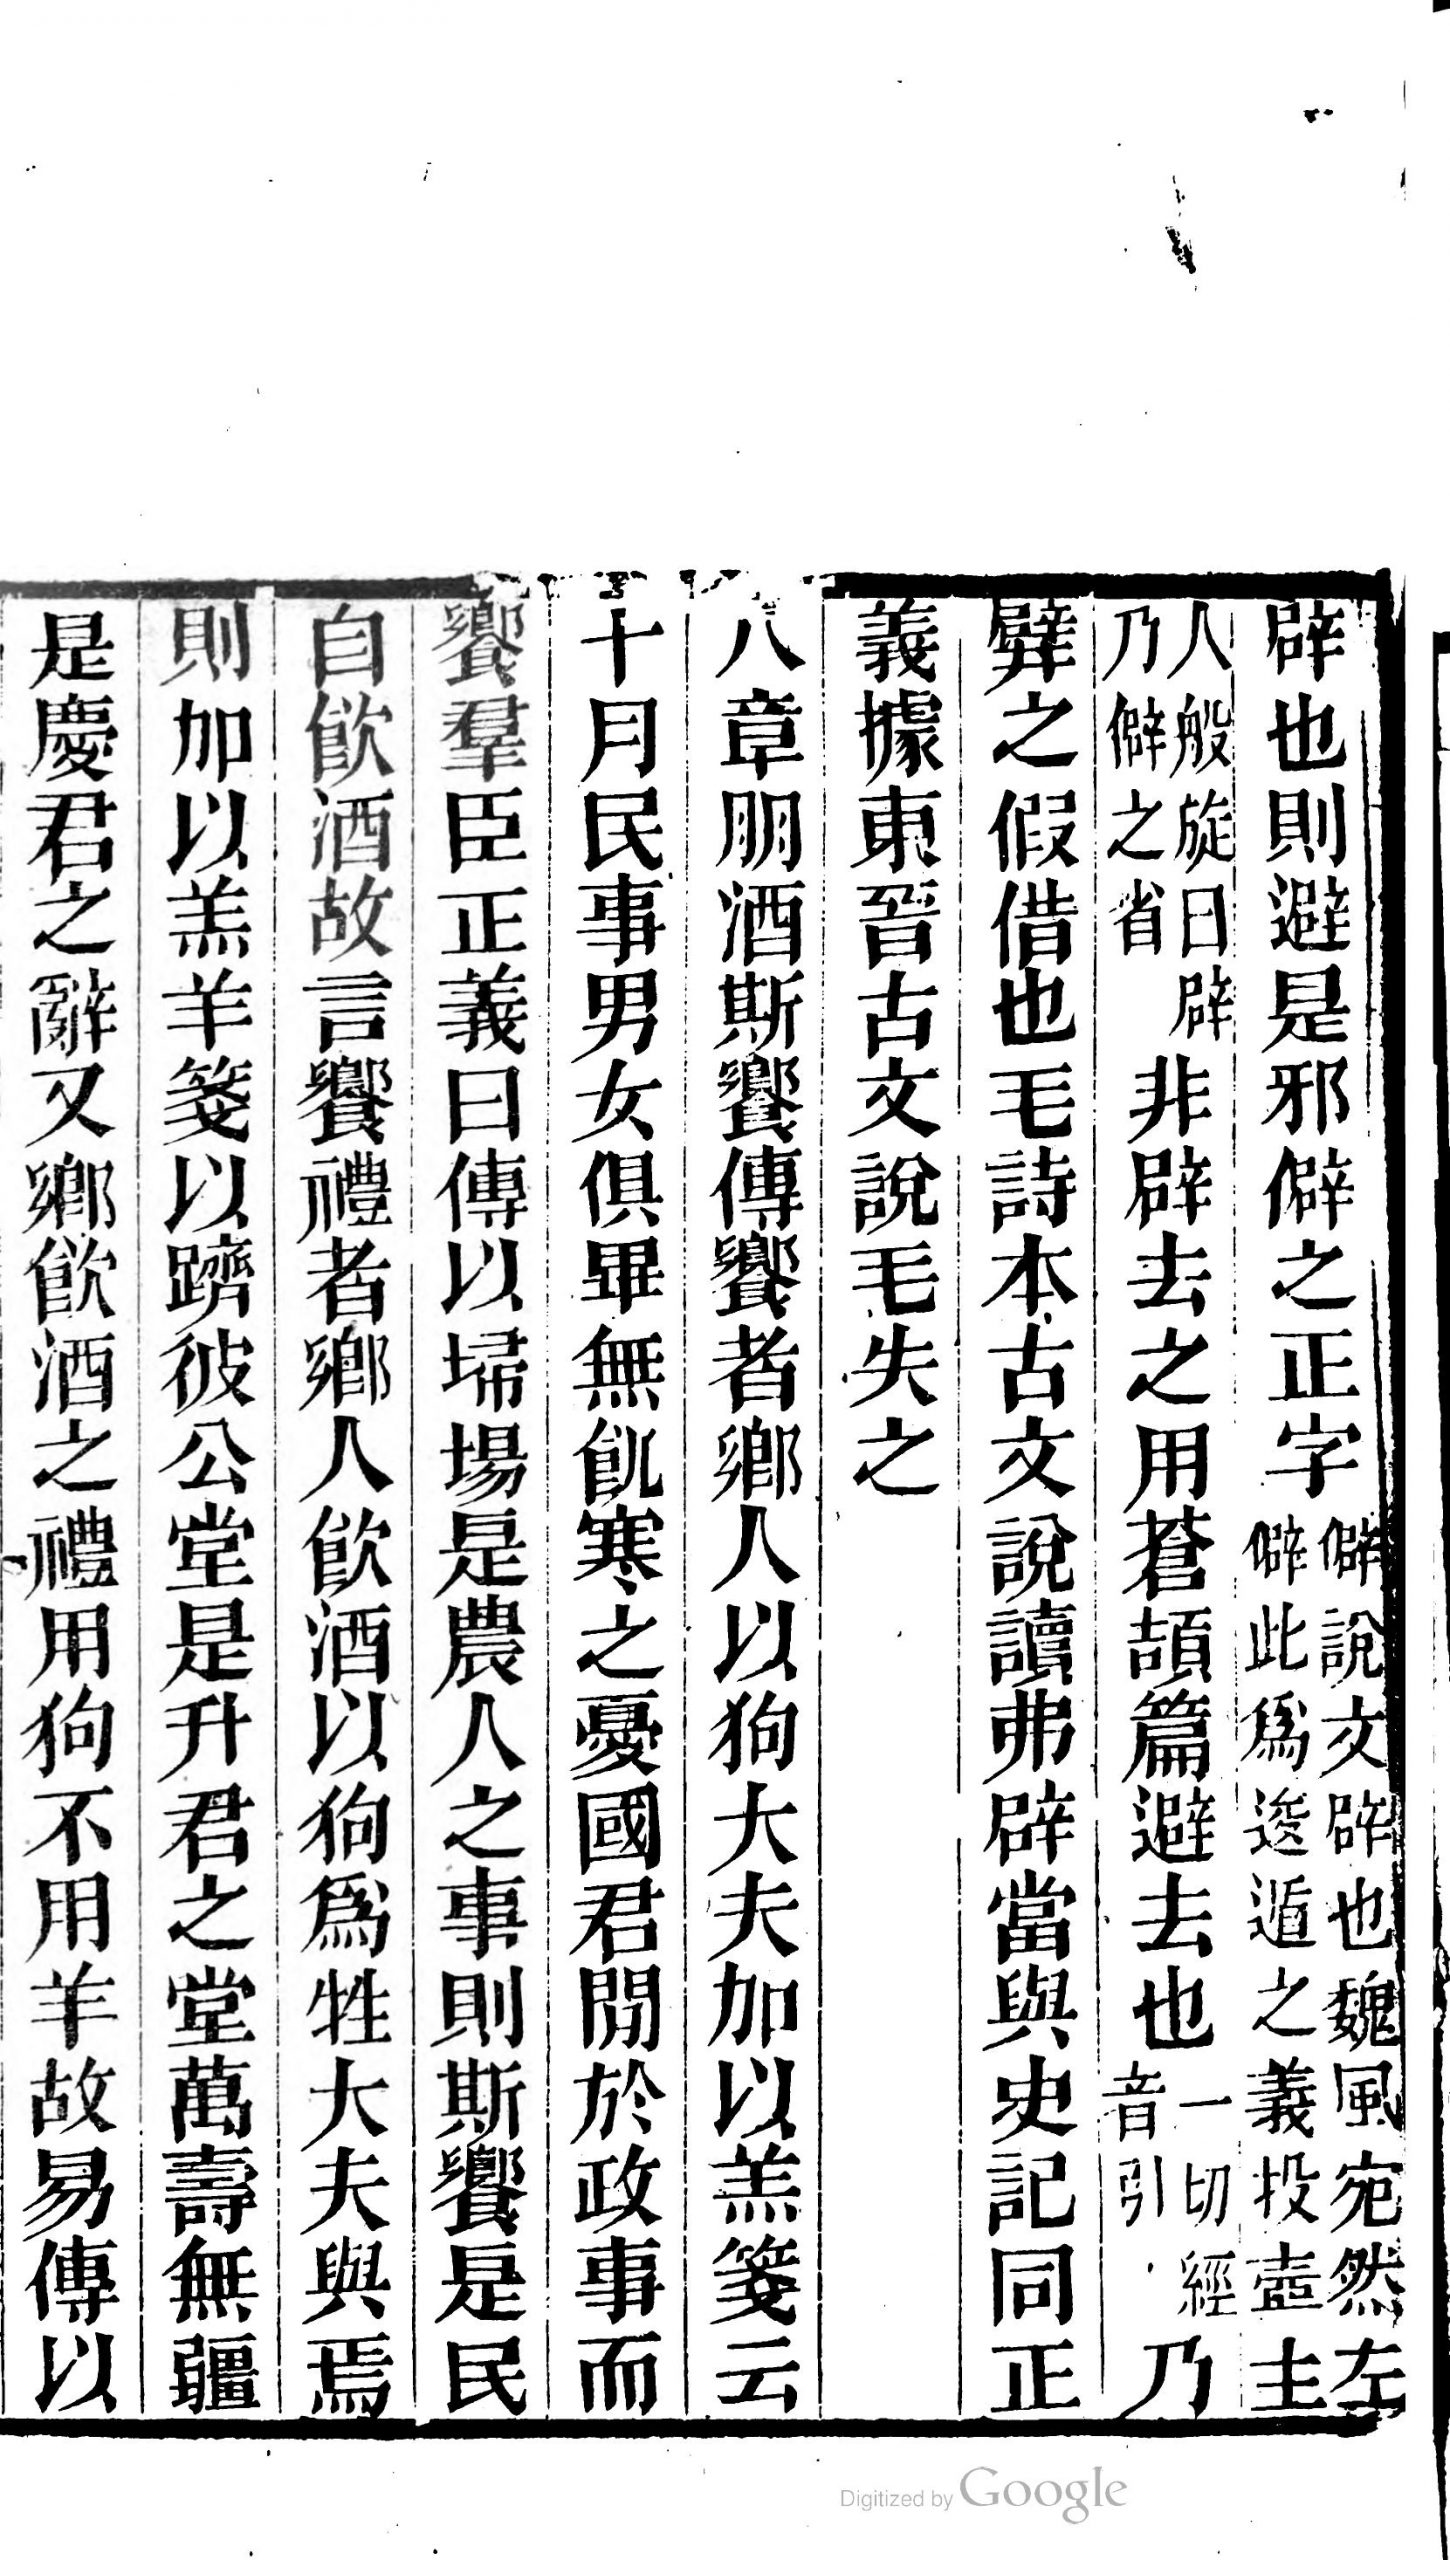 辟也則避是邪僻之正字僻說文辟也魏風宛然左僻此爲逡遁之義投壺主
人般旋曰辟乃僻之省非辟去之用蒼頡篇避去也一切經音引乃
之假借也毛詩本古文說讀弗辟當與史記同正
義據東晉古文說毛失之
八章朋酒斯饗傳饗者鄉人以狗大夫加以羔箋云
十月民事男女俱畢無飢寒之憂國君閒於政事而
饗羣臣正義曰傳以埽場是農人之事則斯饗是民
自飲酒故言饗禮者鄉人飲酒以狗爲牲大夫與焉
則加以羔羊箋以躋彼公堂是升君之堂萬壽無疆
是慶君之辭又鄉飲酒之禮用狗不用羊故易傳以
Digitized by Google